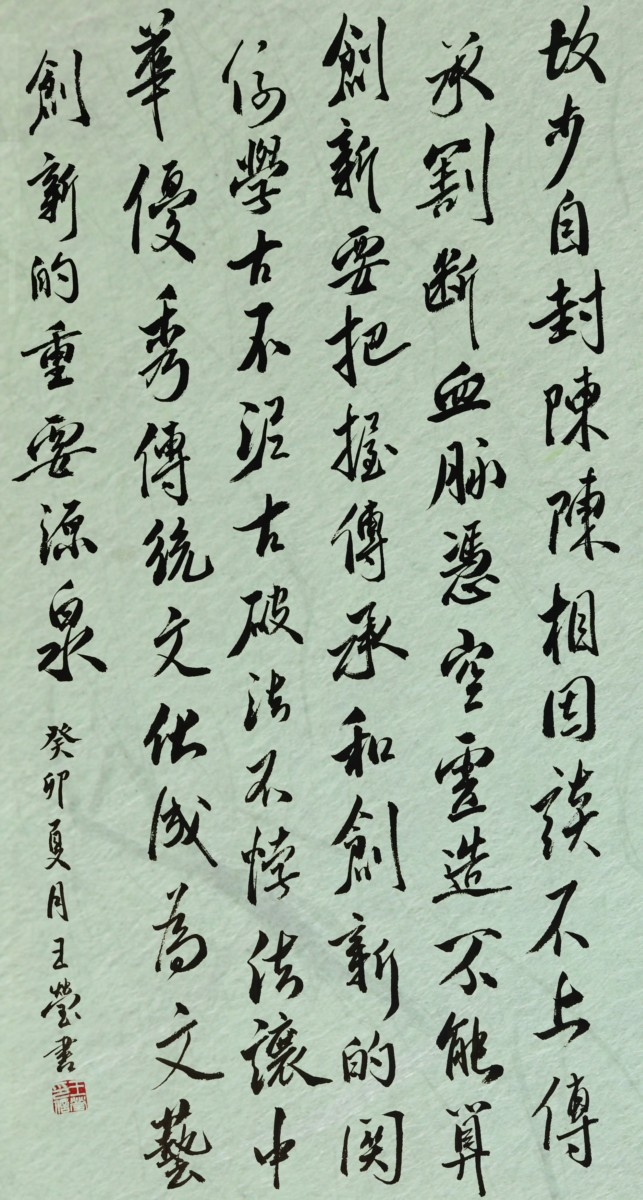 故步自封陳陳相因談不上傳
承割斷血脉憑空虛造不能算
創新要把握傳承和創新的関
係學古不泥古破法不悖法讓中
華優秀傳統文化成為文藝
創新的重要源泉
癸卯夏月王瑩書